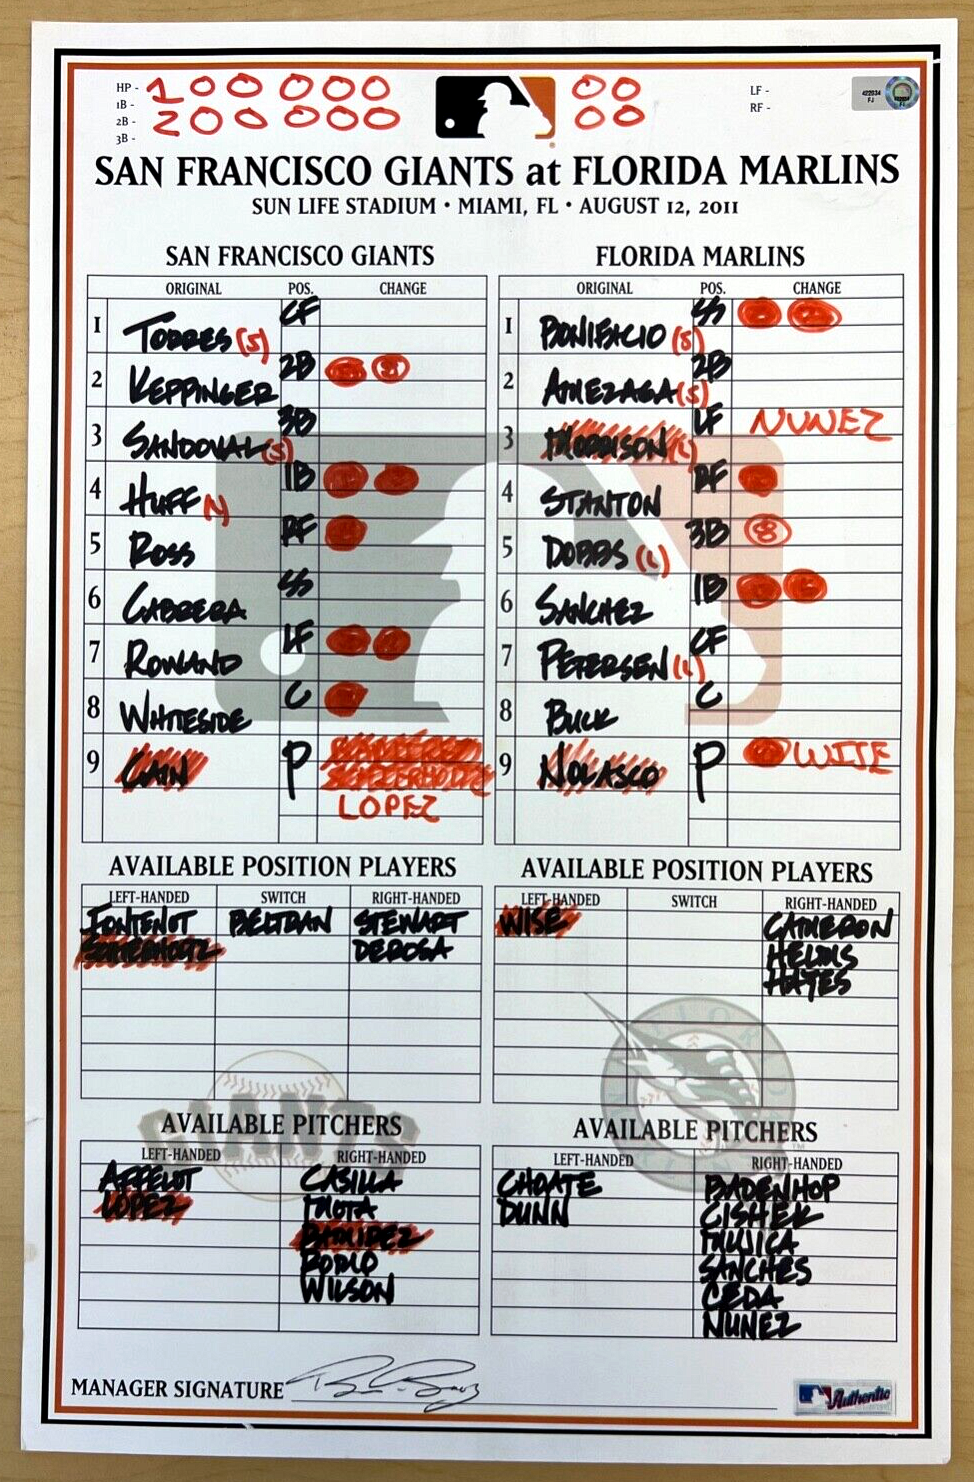 HP - 1 0 0 0 0 0 0 0 LF -
1B -
2B - 2 0 0 0 0 0 0 0 RF -
3B -
422034
FJ
SAN FRANCISCO GIANTS at FLORIDA MARLINS
SUN LIFE STADIUM • MIAMI, FL • AUGUST 12, 2011
SAN FRANCISCO GIANTS
ORIGINAL POS. CHANGE
1 TORRES (S) CF
2 KEPPINGER 2B
3 SANDOVAL (S) 3B
4 HUFF 1B
5 ROSS RF
6 CABRERA SS
7 ROWAND LF
8 WHITESIDE C
9 CAIN P
LOPEZ
FLORIDA MARLINS
ORIGINAL POS. CHANGE
1 BONIFACIO (S) SS
2 AMEZAGA (S) 2B
3 MORRISON (L) LF NUNEZ
4 STANTON RF
5 DOBBS (L) 3B 8
6 SANCHEZ 1B
7 PETERSEN (L) CF
8 BUCK C
9 NOLASCO P WISE
AVAILABLE POSITION PLAYERS
LEFT-HANDED SWITCH RIGHT-HANDED
FONTENOT BELTRAN STEWART
DEROSA
AVAILABLE POSITION PLAYERS
LEFT-HANDED SWITCH RIGHT-HANDED
WISE CAMERON
HELMS
HAYES
AVAILABLE PITCHERS
LEFT-HANDED RIGHT-HANDED
AFFELDT CASILLA
LOPEZ MOTA
RAMIREZ
ROMO
WILSON
AVAILABLE PITCHERS
LEFT-HANDED RIGHT-HANDED
CHOATE BADENHOP
DUNN CISHEK
MUJICA
SANCHES
CEDA
NUNEZ
GIANTS
MANAGER SIGNATURE
Authentic